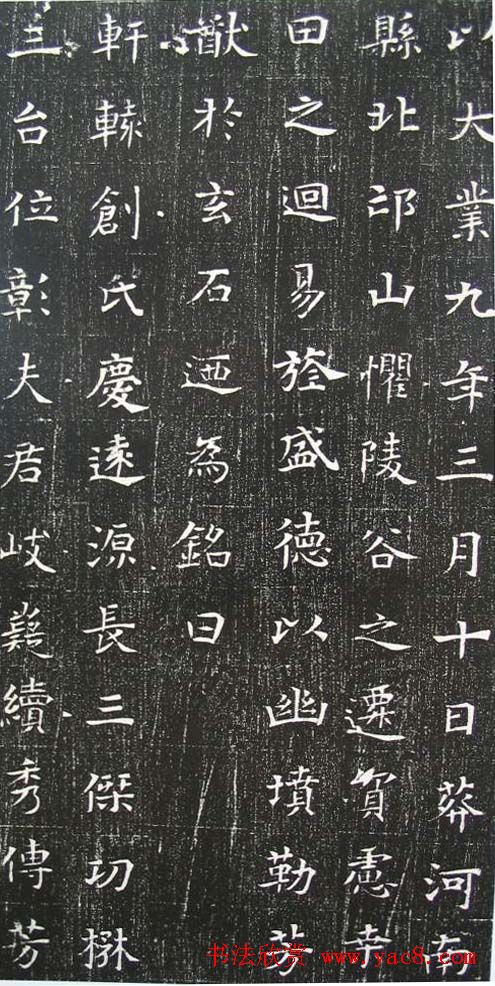 以大業九年三月十日葬河南
縣北邙山懼陵谷之遷貿慮桒
田之迴易旌盛德以幽墳勒芳
猷於玄石迺為銘曰
軒轅創氏慶遠源長三傑功楙
三台位彰夫君岐嶷續秀傳芳
书法欣赏 www.yac8.com